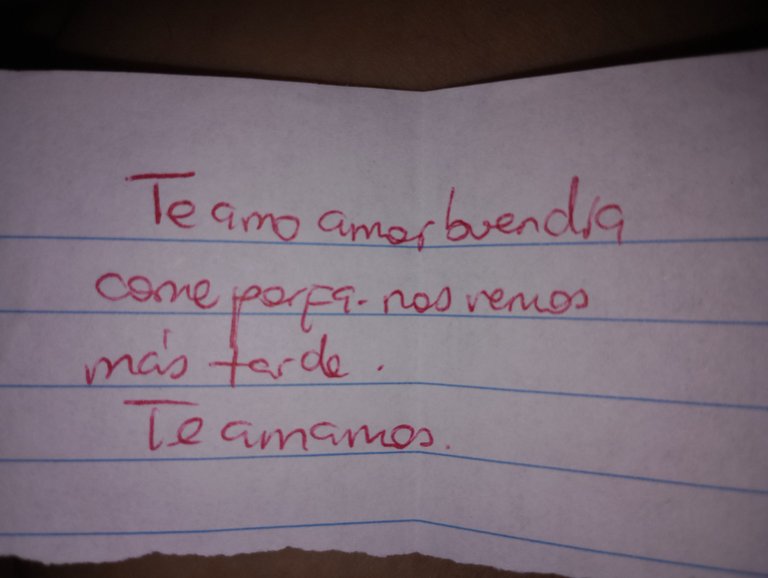 Te amo amor buendía
come porfa. nos vemos
más tarde.
Te amamos.